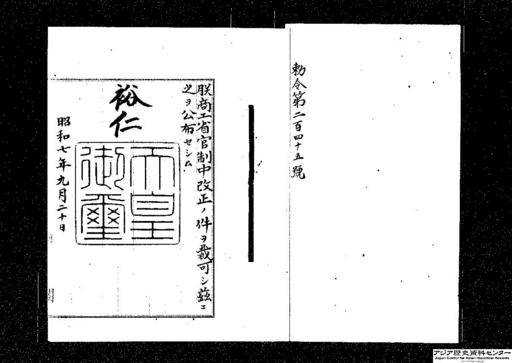 勅令第二百四十五號
朕商工省官制中改正ノ件ヲ裁可シ茲ニ
之ヲ公布セシム
裕仁
天皇
御璽
昭和七年九月二十日
アジア歴史資料センター
Japan Center for Asian Historical Records